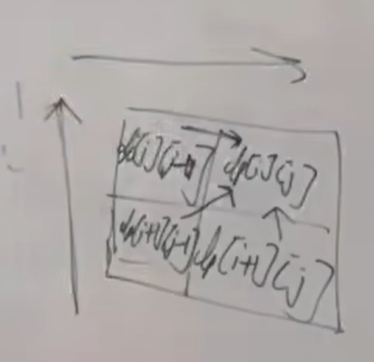 dp[i][j-1] dp[i][j]
dp[i+1][j-1] dp[i+1][j]